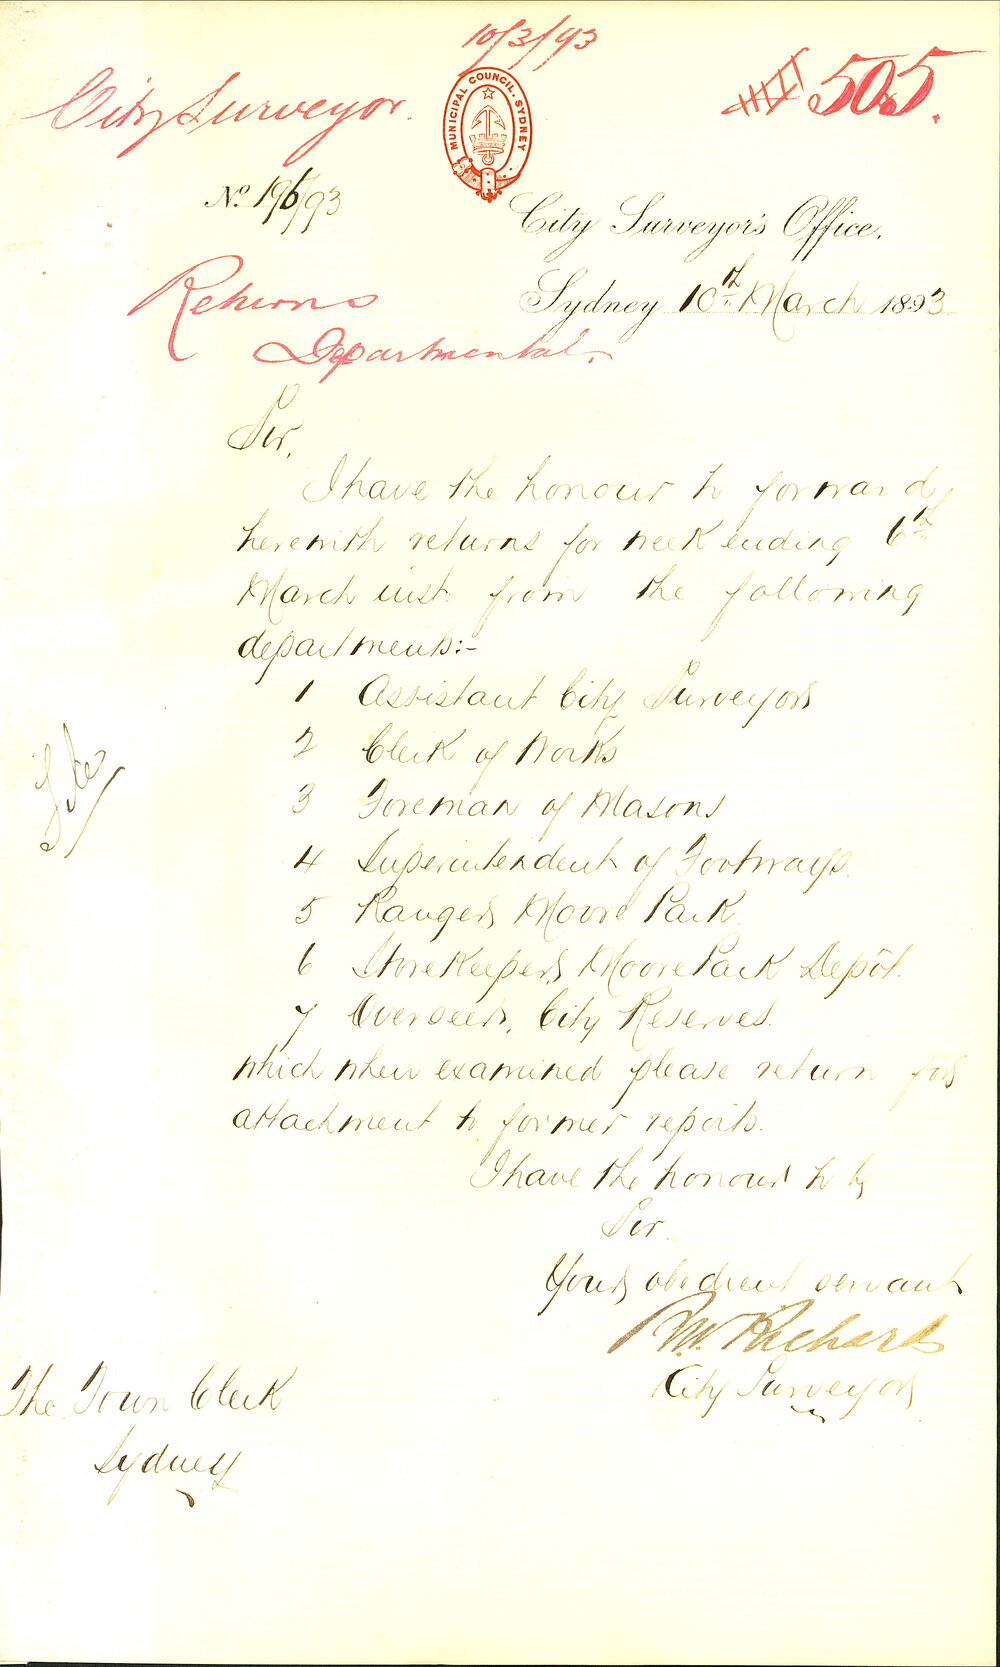 10/3/93
City Surveyor.
505.
MUNICIPAL COUNCIL. SYDNEY
No. 196/93
City Surveyor's Office.
Sydney 10th March 1893
Returns
Departmental.
Sir,
I have the honour to forward,
herewith returns for week ending 6th
March inst. from the following
departments:-
1 Assistant City Surveyor
2 Clerk of Works
3 Foreman of Masons
4 Superintendent of Footways.
5 Ranger, Moore Park.
6 Storekeeper, Moore Park Depôt.
7 Overseer, City Reserves.
which when examined please return for
attachment to former reports.
I have the honour to be
Sir.
Your obedient servant
R.W. Richards
City Surveyor
The Town Clerk
Sydney
File